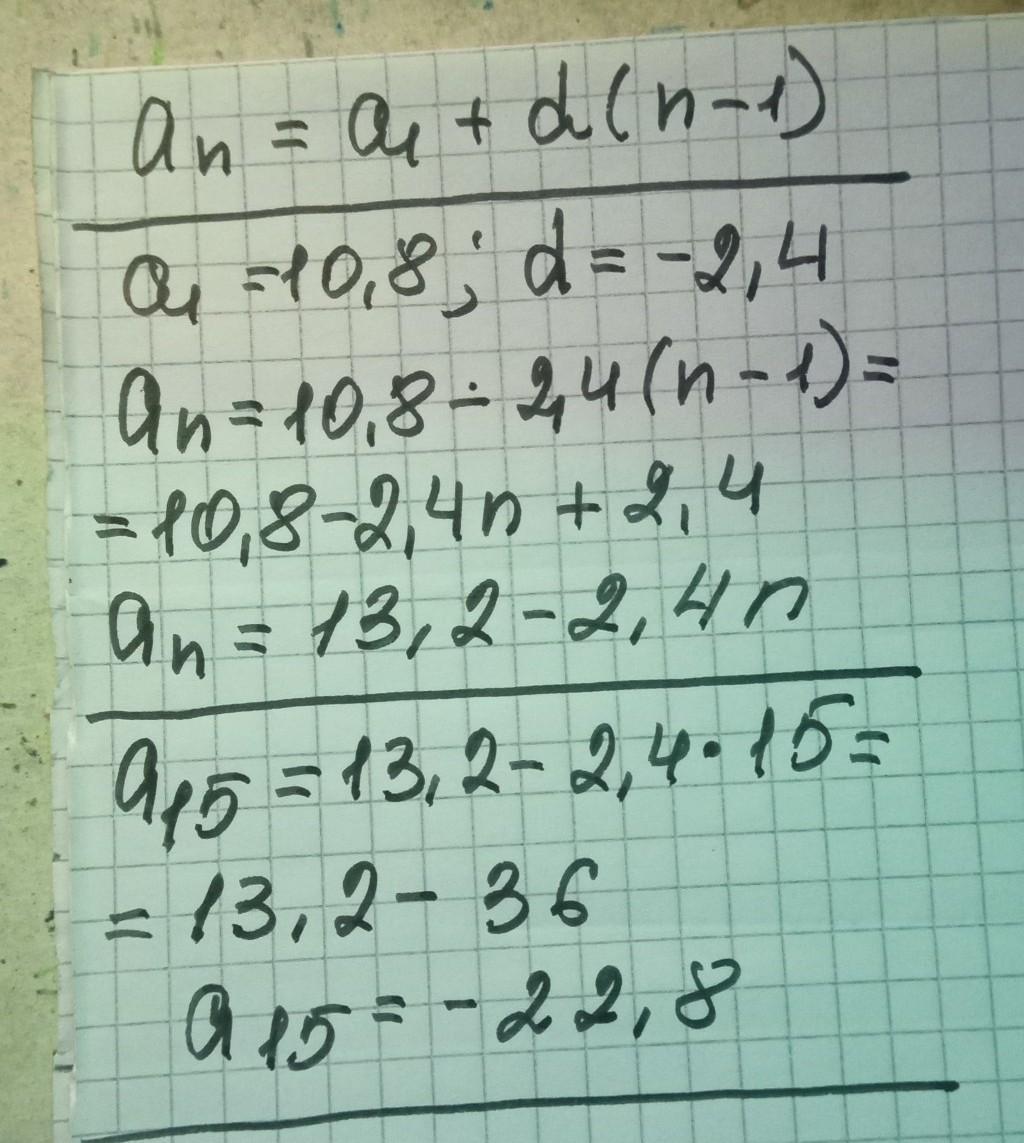 aₙ = a₁ + d(n-1)
a₁ = 10,8; d = -2,4
aₙ = 10,8 - 2,4(n-1) =
= 10,8 - 2,4n + 2,4
aₙ = 13,2 - 2,4n
a₁₅ = 13,2 - 2,4·15 =
= 13,2 - 36
a₁₅ = -22,8